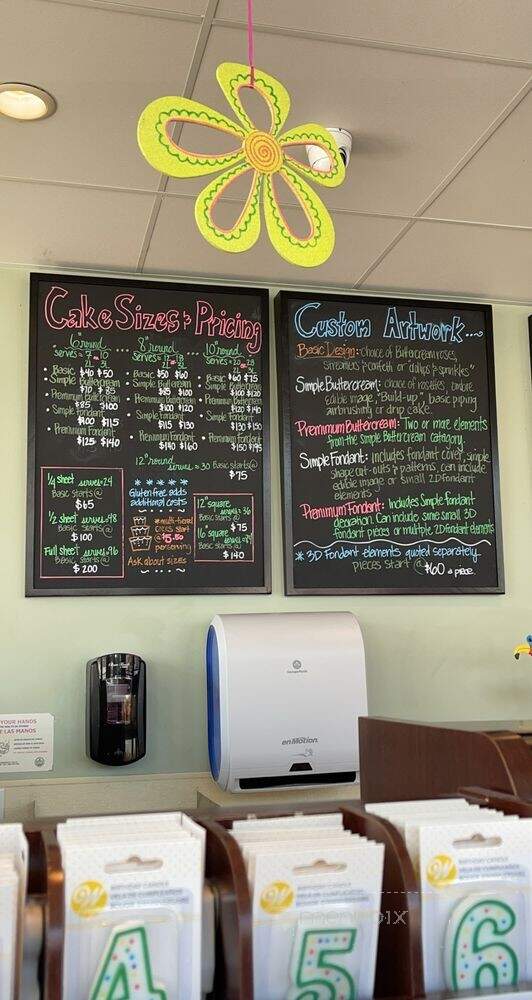 Cake Sizes & Pricing
6" round
serves = 7 - 10
• Basic $40 $50
• Simple Buttercream
• Premium Buttercream
$85 $100
• Simple Fondant
$100 $115
• Premium Fondant
$125 $140
8" round
• Basic $50 $60
• Simple Buttercream
$85 $100
• Premium Buttercream
$100 $120
• Simple Fondant
$115 $130
• Premium Fondant
$140 $160
10" round
• Basic $60 $75
• Simple Buttercream
$100 $120
• Premium Buttercream
$120 $140
• Simple Fondant
$130 $150
• Premium Fondant
$150 $195
12" round serves = 30 Basic starts @
$75
1/4 sheet serves = 24
Basic starts @
$65
1/2 sheet serves = 48
Basic starts @
$100
Full sheet serves = 96
Basics @
$200
Gluten free adds
additional costs
* multi-tiered
cakes start
@ $5.50
per serving
Ask about sizes
12" square
serves = 36
Basic starts @
$75
16" square
Basic starts @
$140
Custom Artwork...
Basic Design: choice of Buttercream roses,
streamers & confetti or dollops & sprinkles"
Simple Buttercream: choice of rosettes, ombre
edible image, "Build-up", basic piping
airbrushing or drip cake.
Premimum Buttercream: Two or more elements
from the Simple Buttercream category.
Simple Fondant: includes fondant cover, simple
shape cut-outs & patterns, can include
edible image or small 2D fondant
elements -
Premimum Fondant: Includes Simple fondant
decoration. Can include some small 3D
fondant pieces or multiple 2D fondant elements
* 3D Fondant elements quoted separately
pieces start @ $60 a piece.
YOUR HANDS
LAS MANOS
enMotion
BIRTHDAY CANDLE
4
BIRTHDAY CANDLE
5
BIRTHDAY CANDLE
6